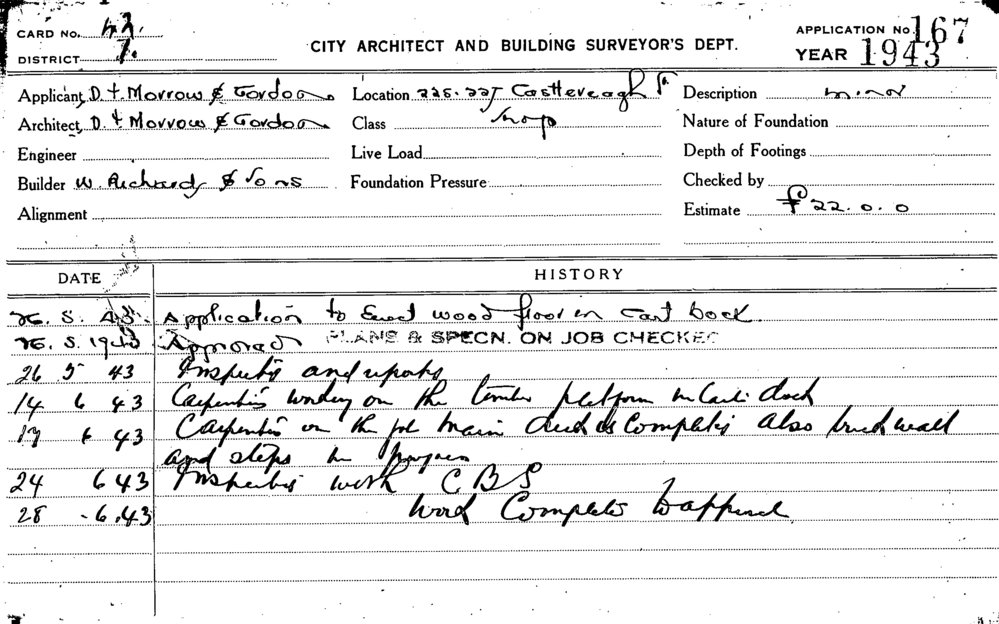 CARD No. 42.
DISTRICT 7.
CITY ARCHITECT AND BUILDING SURVEYOR'S DEPT.
APPLICATION No. 167
YEAR 1943
Applicant D. & Morrow & Gordon Location 225-227 Castlereagh St. Description minor
Architect D. & Morrow & Gordon Class Shop Nature of Foundation
Engineer Live Load Depth of Footings
Builder W. Richards & Sons Foundation Pressure Checked by
Alignment Estimate £22. 0. 0
DATE HISTORY
5. 43. Application to Erect wood floor in Cart Dock.
5. 1943 Approved PLANS & SPECN. ON JOB CHECKED
26 5 43 Inspecting and reports
14 6 43 Carpenters working on the timber platform in Cart dock
17 6 43 Carpenters on the job main deck is Complete also brick wall
and steps in progress
24 6 43 Inspecting with C B S
28 . 6. 43 Work Complete to approval